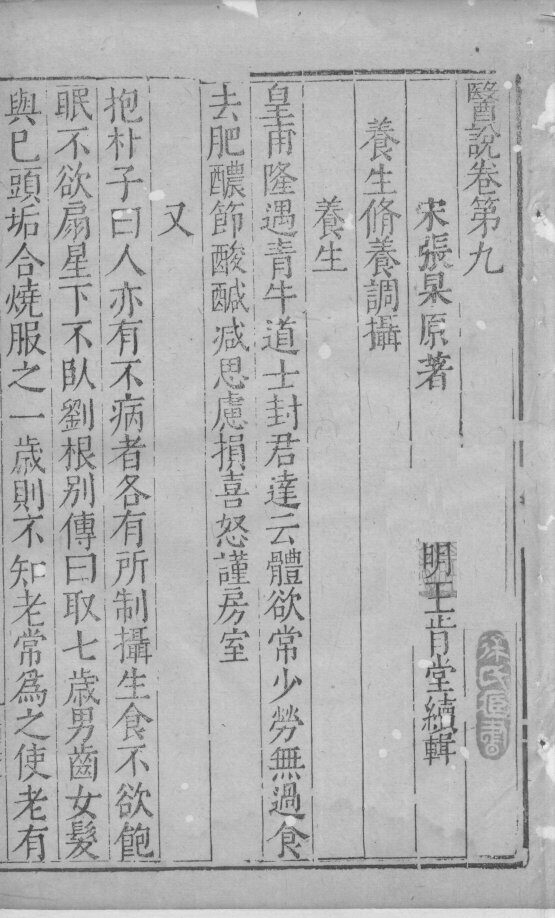 醫說卷第九
宋張杲原著　明王肯堂續輯
養生脩養調攝
養生
皇甫隆遇青牛道士封君達云體欲常少勞無過食
去肥醲節酸鹹減思慮損喜怒謹房室
又
抱朴子曰人亦有不病者各有所制攝生食不欲飽
眠不欲扇星下不臥劉根別傳曰取七歲男齒女髮
與巳頭垢合燒服之一歲則不知老常為之使老有